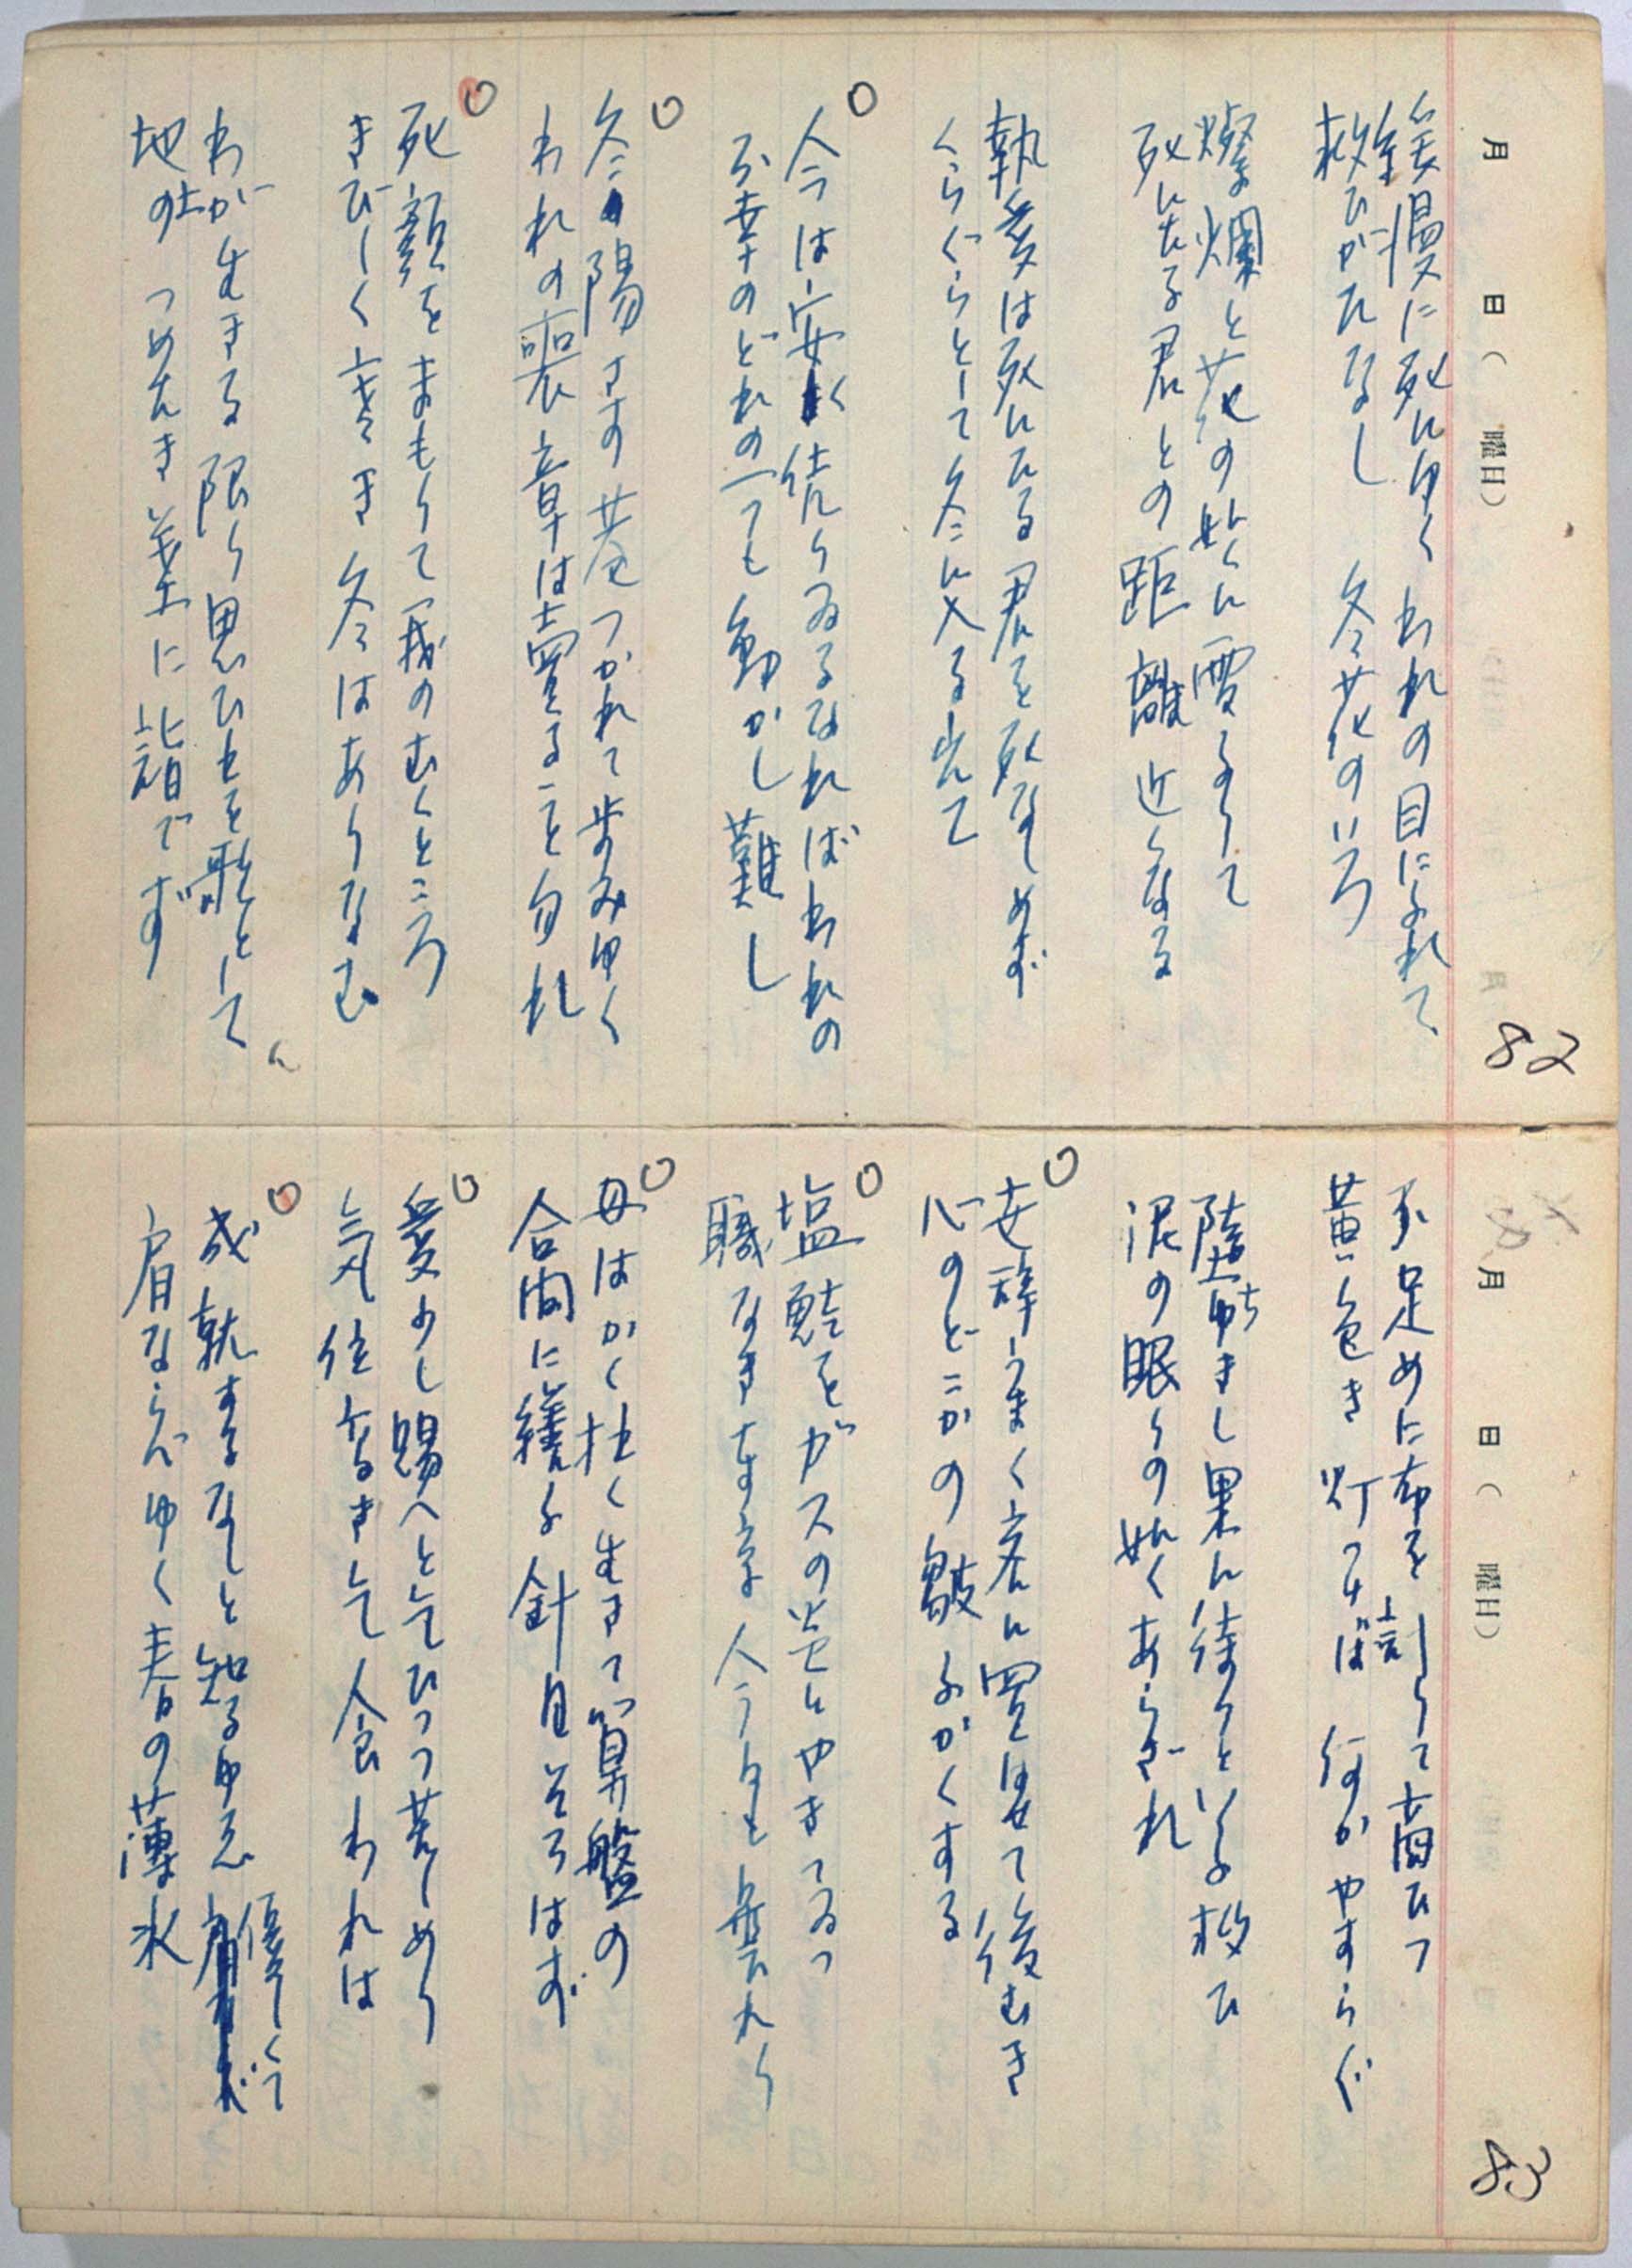 月 日( 曜日)
82
緩慢に死にゆくわれの目にふれて
救ひがたなし 冬花のいろ
燦爛と花の如くに雪ふりて
死にたる君との距離近くなる
執愛は死にたる君を死なしめず
くらぐらとして冬に入る
今は安く 信りゐるなればわれの
不幸のどれの一つも動かし難し
冬陽さす 巷つかれて歩みゆく
われの喪章は売ること勿れ
死顔をまもりて我のむくところ
きびしく寒き冬はありなむ
わが生きる限り思ひ出を歌として
地のつめたき 業に詣でず
月 日( 曜日)
83
不足めに布を計りて商ひつ
黄色き灯つけば 何かやすらぐ
陸ゆきし果に待つといふ救ひ
泥の眠りの如くあらざれ
世辞うまく客に買はせて後むき
心のどこかの皺ふかくする
塩鮭をガスの焰にやきてゐつ
職なき 人ら
母はかく拙く生きてつ算盤の
合間に繕ふ針目そろはず
愛少し賜へとてひつ荒しめり
気位なきして人食わは
成就するなしと知るゆゑ優しくて
肩ならべゆく春の薄氷